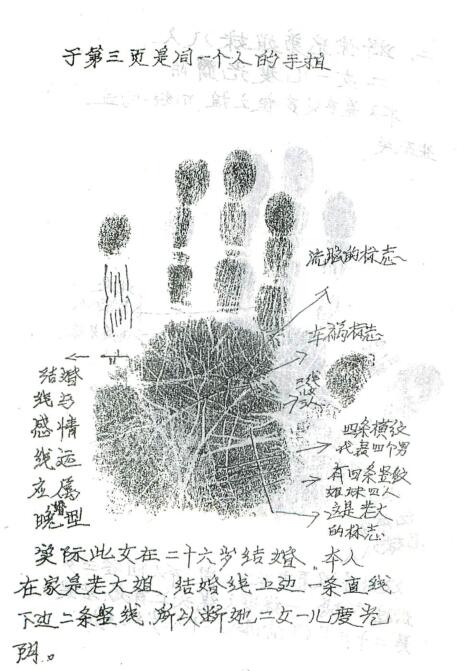 于第三页是同一个人的手拍
流脑的标志
车祸标志
三线
四条横纹
代表四个男
有四条竖纹
姐妹四人
这是老大
的标志
结婚
线与
感情
线运
应属
晚婚型
实际此女在二十六岁结婚。本人
在家是老大姐，结婚线上边一条直线
下边二条竖线，所以断她二女一儿度光
阴。